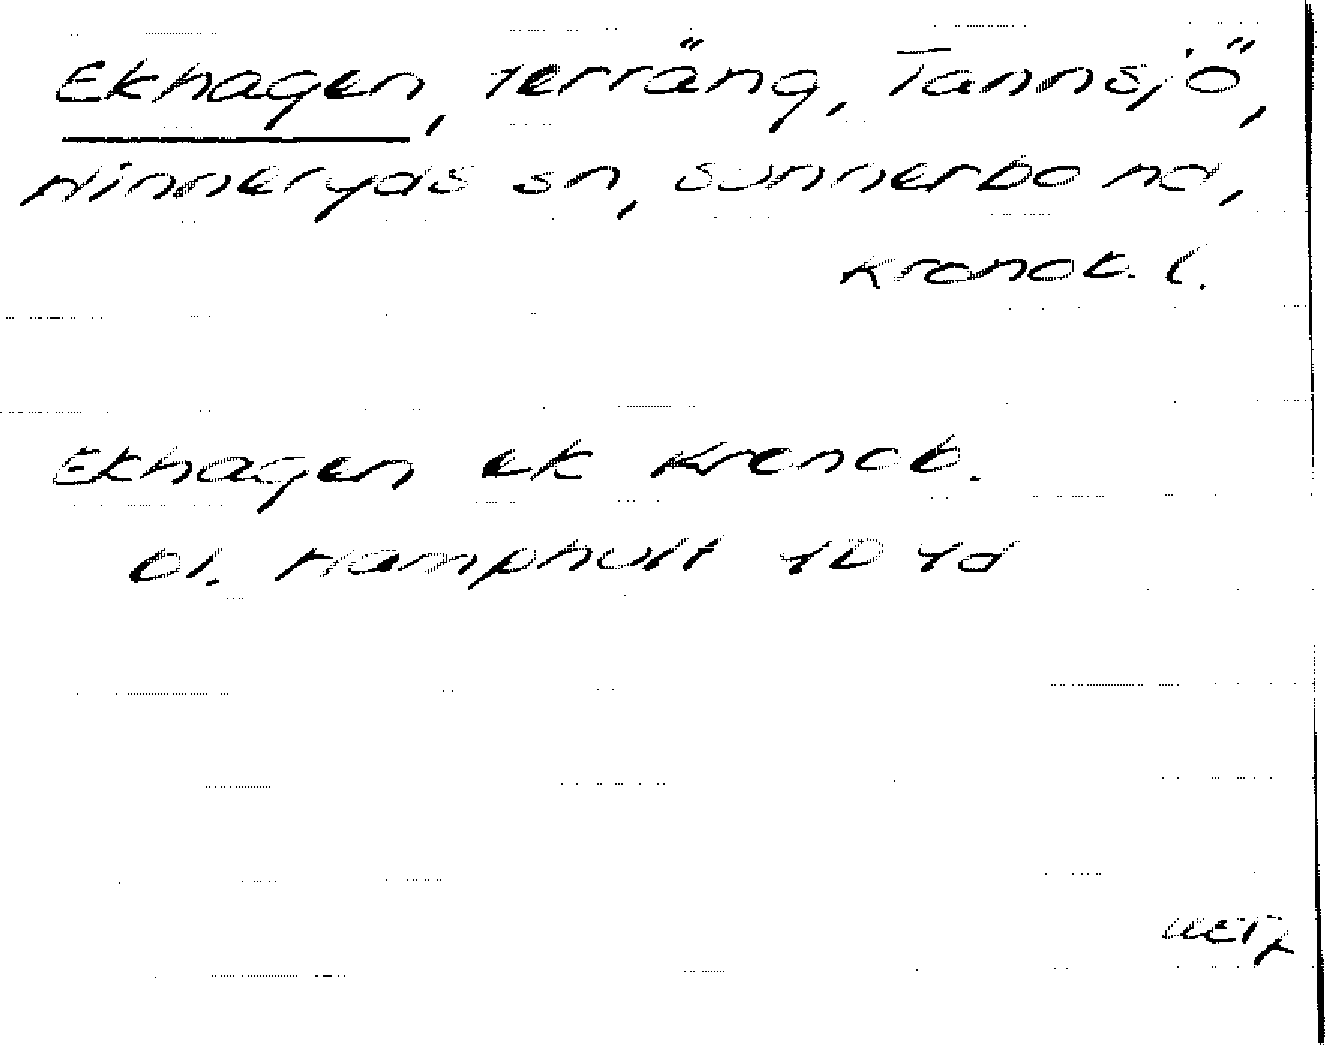 Ekhagen, terräng, Tannsjö,
Hinneryds sn, Sunnerbo hd,
Kronob. l.
Ekhagen ek Kronob.
Hamphult 4D 4d